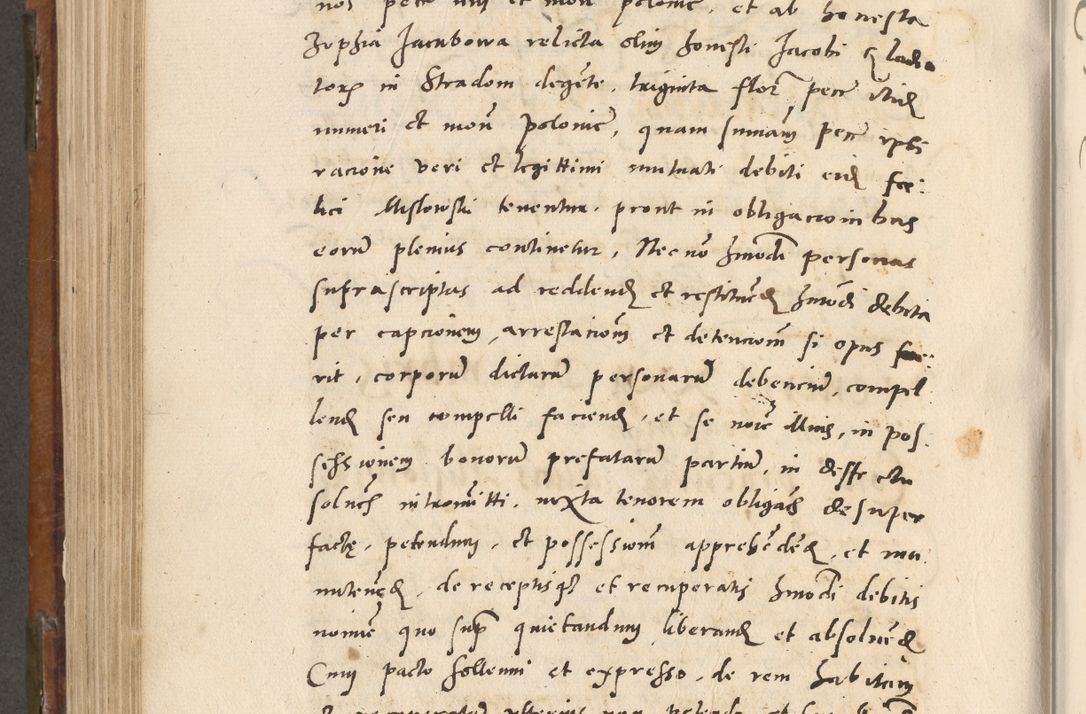 nos pecc nui et mon polonic. et ab honesta
Zophia Jacubowa relicta olim honesti Jacobi
tor in Stradom degēte, triginta flor pecc itid
numeri et mon polonice, quam summam pecc ipsi
racione veri et legittimi mutuati debiti eid fae:
lici Mislowski tenentur. prout in obligacionibus
eorum plenius continetur, Nec nō hmōdi personas
suprascriptas ad reddend et restituēd hmōdi debita
per capcionem, arrestacionem et detencionem si opus fue:
rit, corporum dictarum personarum debencium, compel
lend seu compelli faciend, et se noīe illius, in pos:
sessionem bonorum prefatarum partium, in deffectu
soluch intromitti, iuxta tenorem obligach desuper
facte, petendum, et possessionem apprehēdēd, et ma
nutenēd, de receptisqz et recuperatis hmōdi debitis
nomine quo supra quietandum liberand et absoluēd
Cum pacto sollenni et expresso, de rem habitam